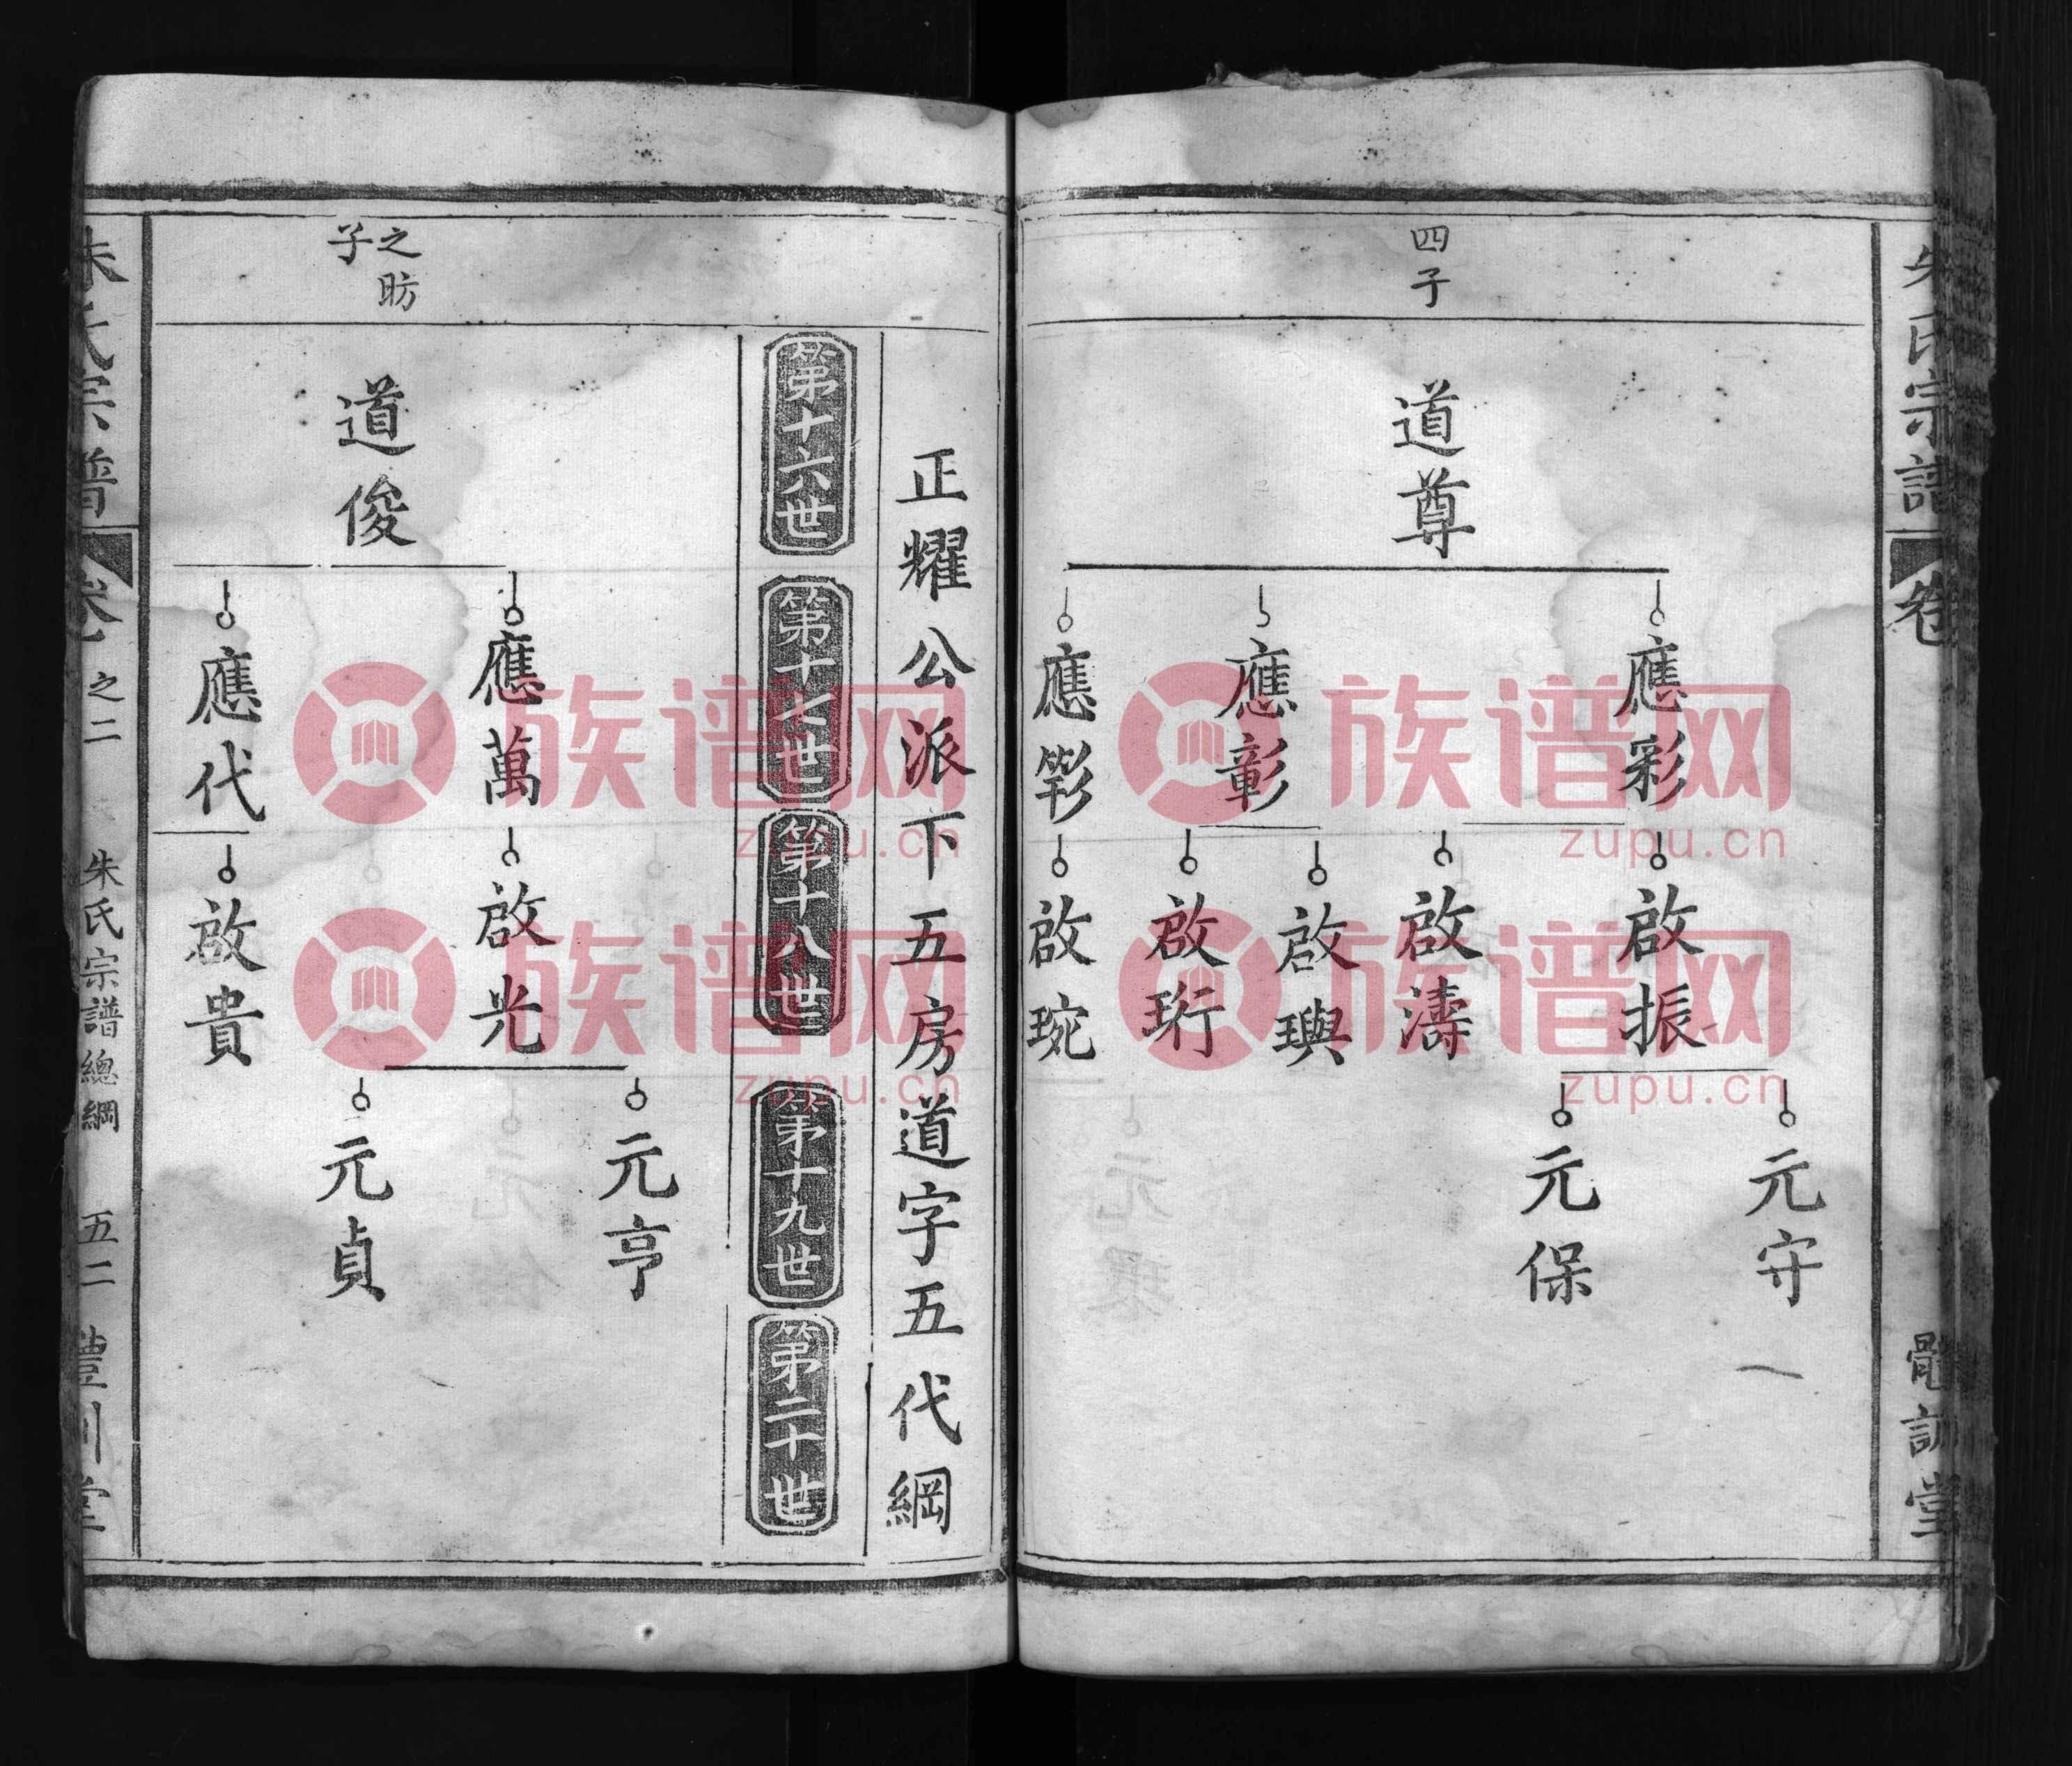 朱氏宗譜 卷
體訓堂
四子
道尊
應彩
應彰
啟振
啟濤
啟璵
啟珩
啟琬
應
元守
元保
正耀公派下五房道字五代綱
第十六世
第十七世
第十八世
第十九世
第二十世
之昉
子
道俊
應萬
應代
啟光
啟貴
元亨
元貞
朱氏宗譜 卷 之二 朱氏宗譜總綱 五二 體訓堂
族谱网
zupu.cn
族谱网
zupu.cn
族谱网
zupu.cn
族谱网
zupu.cn